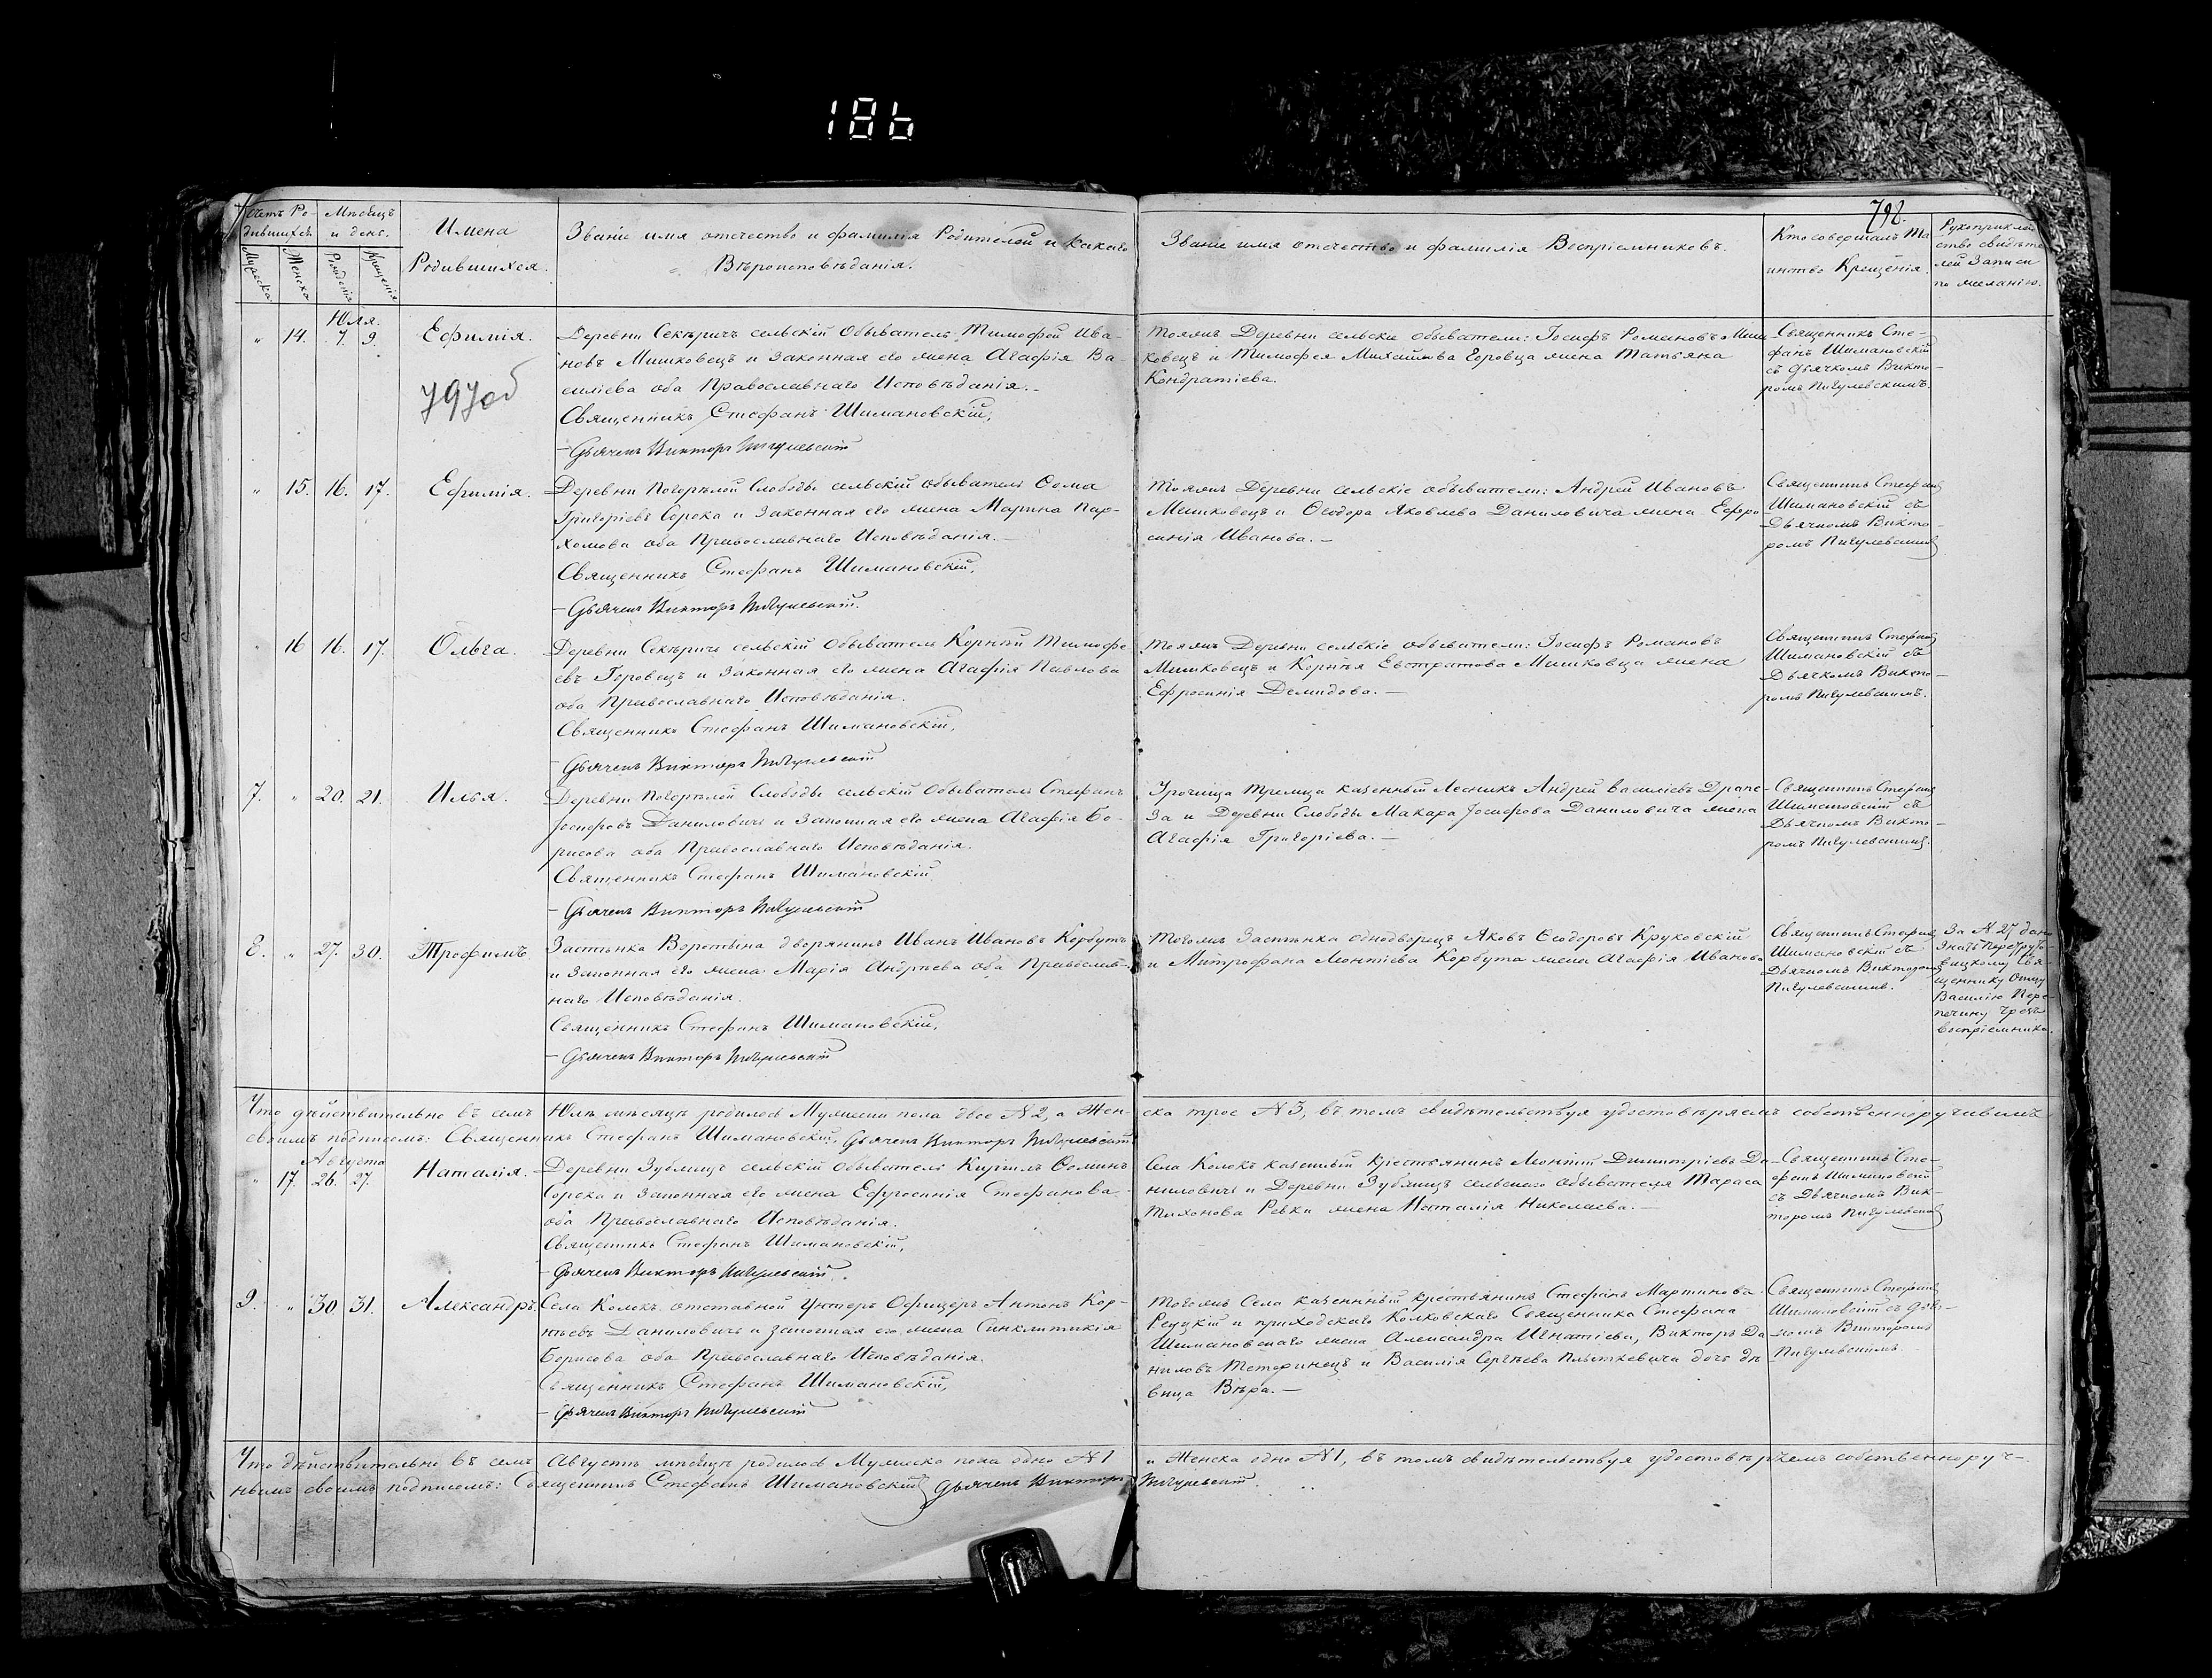 186
798.
Счетъ Ро-
дившихся.
Мѣсяцъ
и день.
Мужеска
Женска
Рожденія
Крещенія
Имена
Родившихся.
Званіе имя отечество и фамилія Родителей и какаго
Вѣроисповѣданія.
Званіе имя отечество и фамилія Воспріемниковъ.
Кто совершалъ Та
инство Крещенія.
Рукоприклад
ство свидѣте
лей Записи
по желанію.
Юля.
" 14. 7. 9. Ефимія.
797об
Деревни Секѣричъ сельскій Обыватель Тимофей Ива-
новъ Мишковецъ и Законная его жена Агафія Ва-
силіева оба Православнаго Исповѣданія.-
Священникъ Стефанъ Шимановскій,
- Дьячекъ Викторъ Пигулевскій
Тояжъ Деревни сельскіе обыватели: Іосифъ Романовъ Миш
ковецъ и Тимофея Михайлова Горовца жена Татьяна
Кондратіева.
Священникъ Сте-
фанъ Шимановскій
съ Дьячкомъ Викто-
ромъ Пигулевскимъ.
" 15. 16. 17. Ефимія.
Деревни Погорѣлой Слободы сельскій обыватель Фома
Григоріевъ Сорока и Законная его жена Марина Пар-
хомова оба Православнаго Исповѣданія.-
Священникъ Стефанъ Шимановскій,
- Дьячекъ Викторъ Пигулевскій.
Тояжъ Деревни сельскіе обыватели: Андрей Ивановъ
Мишковецъ и Ѳеодора Яковлева Даниловича жена Ефро
синія Иванова. -
Священникъ Стефанъ
Шимановскій съ
Дьячкомъ Викто-
ромъ Пигулевскимъ
" 16 16. 17. Ольга.
Деревни Секѣричъ сельскій Обыватель Корнѣй Тимофе
евъ Горовецъ и Законная его жена Агафія Павлова
оба Православнаго Исповѣданія.
Священникъ Стефанъ Шимановскій,
- Дьячекъ Викторъ Пигулевскій
Тояжъ Деревни сельскіе обыватели: Іосифъ Романовъ
Мишковецъ и Корнѣя Евстратова Мишковца жена
Ефросинія Демидова. -
Священникъ Стефанъ
Шимановскій съ
Дьячкомъ Викто-
ромъ Пигулевскимъ.
7. " 20. 21. Илья.
Деревни Погорѣлой Слободы сельскій Обыватель Стефанъ
Іосифовъ Даниловичъ и Законная его жена Агафія Бо-
рисова оба Православнаго Исповѣданія.
Священникъ Стефанъ Шимановскій
- Дьячекъ Викторъ Пигулевскій
Урочища Тремца казенный Лесникъ Андрей Василіевъ Драпе-
за и Деревни Слободы Макара Іосифова Даниловича жена
Агафія Григоріева. -
Священникъ Стефанъ
Шимановскій съ
Дьячкомъ Викто-
ромъ Пигулевскимъ.
8. " 27. 30. Трофимъ.
Застѣнка Воротына дворянинъ Иванъ Ивановъ Корбутъ
и Законная его жена Марія Андрѣева оба Православ-
наго Исповѣданія.
Священникъ Стефанъ Шимановскій,
- Дьячекъ Викторъ Пигулевскій
Тогожъ Застѣнка однодворецъ Яковъ Ѳеодоровъ Круковскій
и Митрофана Леонтіева Корбута жена Агафія Иванова
Священникъ Стефанъ
Шимановскій съ
Дьячкомъ Викторомъ
Пигулевскимъ.
За N 27 дано
знать
вицкому Свя-
щеннику Отцу
Василію Пере
печину чрезъ
воспріемника.
Что дѣйствительно въ семъ Юлѣ мѣсяцѣ родилось Мужеска пола двое N 2, а Жен-
ска трое N 3, въ томъ свидѣтельствуя удостовѣряемъ собственноручнымъ
своимъ подписомъ: Священникъ Стефанъ Шимановскій, Дьячекъ Викторъ Пигулевскій
Августа
" 17. 26. 27. Наталія.
Деревни Зублищъ сельскій Обыватель Кирилъ Ѳоминъ
Сорока и Законная его жена Ефросинія Стефанова
оба Православнаго Исповѣданія.
Священникъ Стефанъ Шимановскій,
- Дьячекъ Викторъ Пигулевскій.
Села Колокъ казенный крестьянинъ Леонтій Димитріевъ Да-
ниловичъ и Деревни Зублищъ сельскаго обывателя Тараса
Тихонова Ревки жена Наталія Николаева. -
Священникъ Сте-
фанъ Шимановскій
съ Дьячкомъ Вик-
торомъ Пигулевским
9. " 30 31. Александръ.
Села Колокъ отставной Унтеръ Офицеръ Антонъ Кор-
нѣевъ Даниловичъ и законная его жена Синклитикія
Борисова оба Православнаго Исповѣданія.
Священникъ Стефанъ Шимановскій,
- Дьячекъ Викторъ Пигулевскій
Тогожъ Села казенный крестьянинъ Стефанъ Мартинова
Редукій и приходскаго Колковскаго Священника Стефана
Шимановскаго жена Александра Игнатіева, Викторъ Да
ниловъ Тетеринецъ и Василія Сергѣева Плыткевича дочь дѣ
вица Вѣра. -
Священникъ Стефанъ
Шимановскій съ Дья-
комъ Викторомъ
Пигулевскимъ.
Что дѣйствительно въ семъ Августѣ мѣсяцѣ родилось Мужеска пола одно N 1
и Женска одно N 1, въ томъ свидѣтельствуя удостовѣряемъ собственноруч-
нымъ своимъ подписомъ: Священникъ Стефанъ Шимановскій, Дьячекъ Викторъ
Пигулевскій.